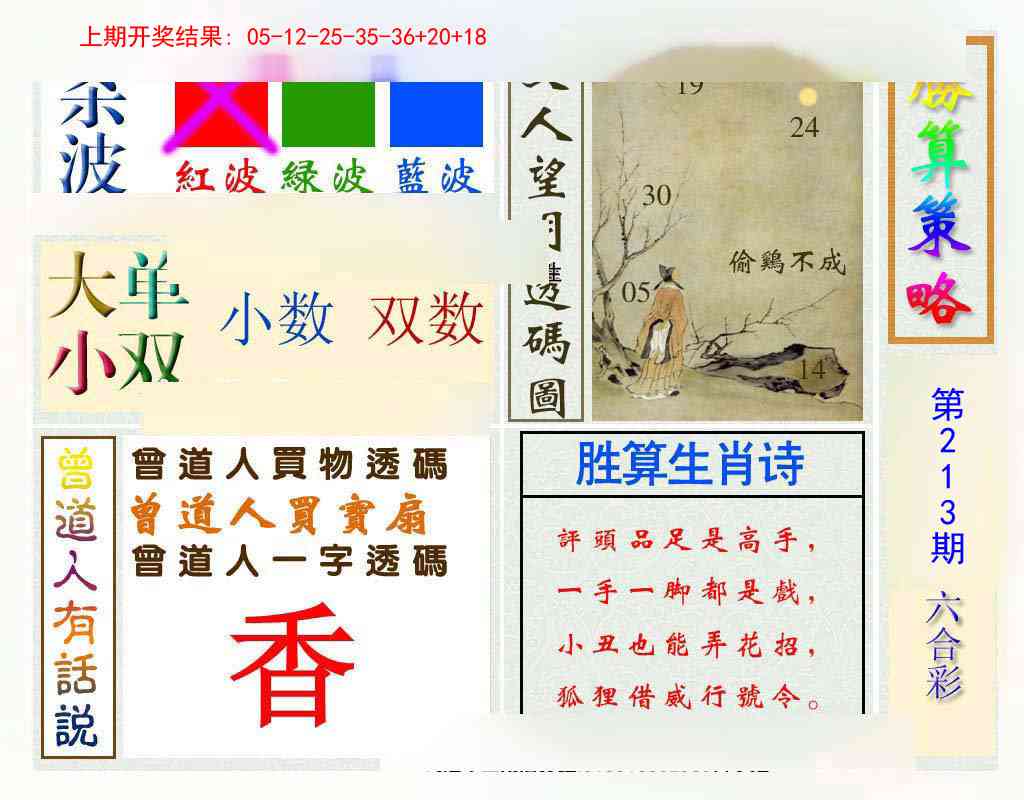 上期开奖结果: 05-12-25-35-36+20+18
波
紅波 緑波 藍波
人望月透碼圖
19
24
30
偷鷄不成
05
14
勝算策略
大单
小双
小数 双数
第213期
六合彩
曾道人有話説
曾道人買物透碼
曾道人買寶扇
曾道人一字透碼
香
胜算生肖诗
評頭品足是高手，
一手一脚都是戲，
小丑也能弄花招，
狐狸借威行號令。